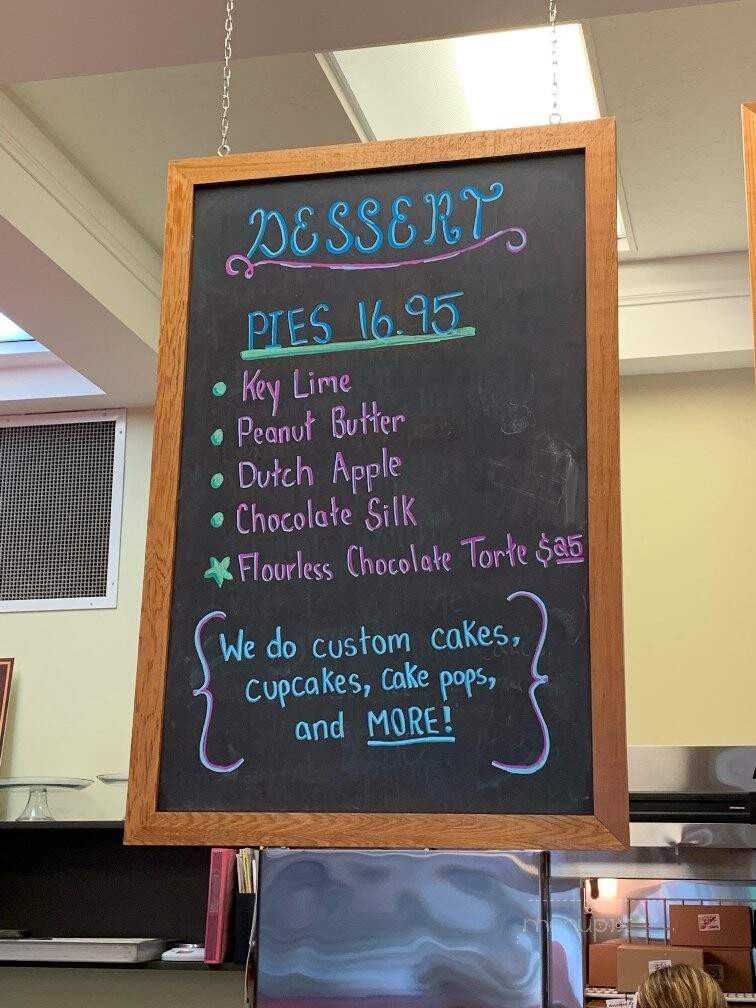 DESSERT
PIES 16.95
Key Lime
Peanut Butter
Dutch Apple
Chocolate Silk
Flourless Chocolate Torte $25
We do custom cakes,
cupcakes, cake pops,
and MORE!